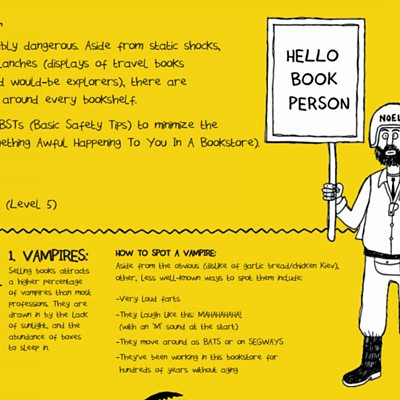 bly dangerous. Aside from static shocks,
lanches (displays of travel books
d would-be explorers), there are
around every bookshelf.
BSTs (Basic Safety Tips) to minimize the
ething Awful Happening To You In A Bookstore).
(Level 5)
HELLO
BOOK
PERSON
NOEL
1. VAMPIRES:
Selling books attracts
a higher percentage
of vampires than most
professions. They are
drawn in by the lack
of sunlight, and the
abundance of boxes
to sleep in.
HOW TO SPOT A VAMPIRE:
Aside from the obvious (dislike of garlic bread/chicken Kiev),
other, less well-known ways to spot them include:
-Very loud farts
-They laugh like this: MAHAHAHAHA!
(with an "M" sound at the start)
-They move around as BATS or on SEGWAYS
-They've been working in this bookstore for
hundreds of years without aging